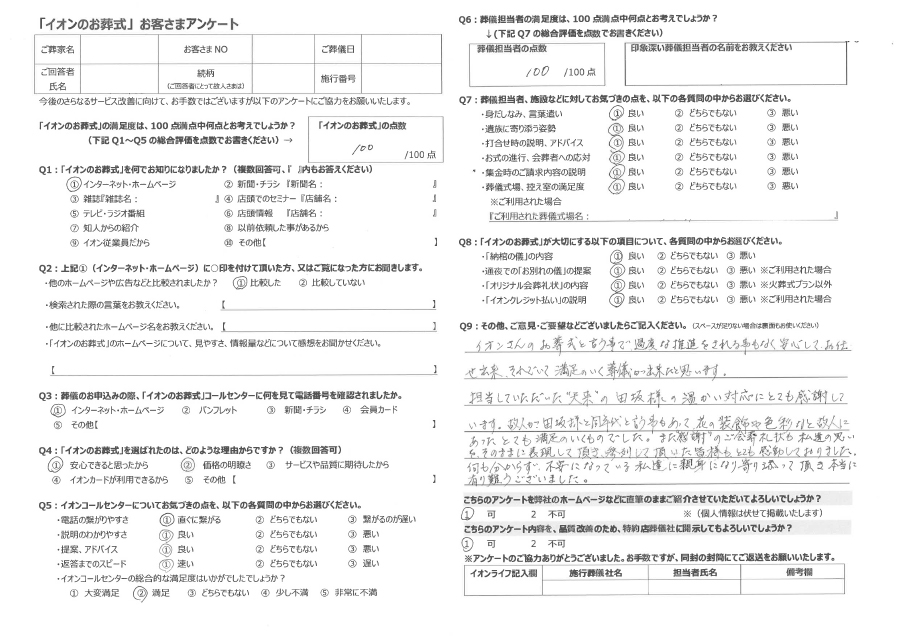 「イオンのお葬式」お客さまアンケート
ご葬家名 お客さまNO ご葬儀日
ご回答者氏名 続柄(ご回答者にとって故人さまは) 施行番号
今後のさらなるサービス改善に向けて、お手数ではございますが以下のアンケートにご協力をお願いいたします。
「イオンのお葬式」の満足度は、100点満点中何点とお考えでしょうか?
(下記Q1~Q5の総合評価を点数でお書きください)→
「イオンのお葬式」の点数
100 /100点
Q1:「イオンのお葬式」を何でお知りになりましたか?(複数回答可、『 』内もお答えください)
① インターネット・ホームページ ② 新聞・チラシ『新聞名: 』
③ 雑誌『雑誌名: 』 ④ 店頭でのセミナー『店舗名: 』
⑤ テレビ・ラジオ番組 ⑥ 店頭情報 『店舗名: 』
⑦ 知人からの紹介 ⑧ 以前依頼した事があるから
⑨ イオン従業員だから ⑩ その他【 】
Q2:上記①(インターネット・ホームページ)に○印を付けて頂いた方、又はご覧になった方にお聞きします。
・他のホームページや広告などと比較されましたか? ① 比較した ② 比較していない
・検索された際の言葉をお教えください。 【 】
・他に比較されたホームページ名をお教えください。【 】
・「イオンのお葬式」のホームページについて、見やすさ、情報量などについて感想をお聞かせください。
【 】
Q3:葬儀のお申込みの際、「イオンのお葬式」コールセンターに何を見て電話番号を確認されましたか。
① インターネット・ホームページ ② パンフレット ③ 新聞・チラシ ④ 会員カード
⑤ その他【 】
Q4:「イオンのお葬式」を選ばれたのは、どのような理由からですか?(複数回答可)
① 安心できると思ったから ② 価格の明瞭さ ③ サービスや品質に期待したから
④ イオンカードが利用できるから ⑤ その他 【 】
Q5:イオンコールセンターについてお気づきの点を、以下の各質問の中からお選びください。
・電話の繋がりやすさ ① 直ぐに繋がる ② どちらでもない ③ 繋がるのが遅い
・説明のわかりやすさ ① 良い ② どちらでもない ③ 悪い
・提案、アドバイス ① 良い ② どちらでもない ③ 悪い
・返答までのスピード ① 速い ② どちらでもない ③ 遅い
・イオンコールセンターの総合的な満足度はいかがでしたでしょうか?
① 大変満足 ② 満足 ③ どちらでもない ④ 少し不満 ⑤ 非常に不満
Q6:葬儀担当者の満足度は、100点満点中何点とお考えでしょうか?
↓(下記Q7の総合評価を点数でお書きください)
葬儀担当者の点数
100 /100点
印象深い葬儀担当者の名前をお教えください
Q7:葬儀担当者、施設などに対してお気づきの点を、以下の各質問の中からお選びください。
・身だしなみ、言葉遣い ① 良い ② どちらでもない ③ 悪い
・遺族に寄り添う姿勢 ① 良い ② どちらでもない ③ 悪い
・打合せ時の説明、アドバイス ① 良い ② どちらでもない ③ 悪い
・お式の進行、会葬者への応対 ① 良い ② どちらでもない ③ 悪い
・集金時のご請求内容の説明 ① 良い ② どちらでもない ③ 悪い
・葬儀式場、控え室の満足度 ① 良い ② どちらでもない ③ 悪い
※ご利用された場合
『ご利用された葬儀式場名: 』
Q8:「イオンのお葬式」が大切にする以下の項目について、各質問の中からお選びください。
・「納棺の儀」の内容 ① 良い ② どちらでもない ③ 悪い
・通夜での「お別れの儀」の提案 ① 良い ② どちらでもない ③ 悪い ※ご利用された場合
・「オリジナル会葬礼状」の内容 ① 良い ② どちらでもない ③ 悪い ※火葬式プラン以外
・「イオンクレジット払い」の説明 ① 良い ② どちらでもない ③ 悪い ※ご利用された場合
Q9:その他、ご意見・ご要望などございましたらご記入ください。(スペースが足りない場合は裏面もお使いください)
イオンさんのお葬式と言う事で過度な推進をされる事もなく安心してお任
せ出来、それでいて満足のいく葬儀が出来たと思います。
担当していただいた"天来"の田坂様の温かい対応にとても感謝して
います。故人が田坂様と同年代と言う事もあって花の装飾や色彩など故人に
あったとても満足のいくものでした。また"感謝"のご会葬礼状も私達の思い
をそのままに表現して頂き、参列して頂いた皆様もとても感動しておりました。
何も分からず、不安になっている私達に親身になり寄り添って頂き本当に
有り難うございました。
こちらのアンケートを弊社のホームページなどに直筆のままご紹介させていただいてよろしいでしょうか?
1 可 2 不可 ※(個人情報は伏せて掲載いたします)
こちらのアンケート内容を、品質改善のため、特約店葬儀社に開示してもよろしいでしょうか?
1 可 2 不可
※アンケートのご協力ありがとうございました。お手数ですが、同封の封筒にてご返送をお願いいたします。
イオンライフ記入欄 施行葬儀社名 担当者氏名 備考欄